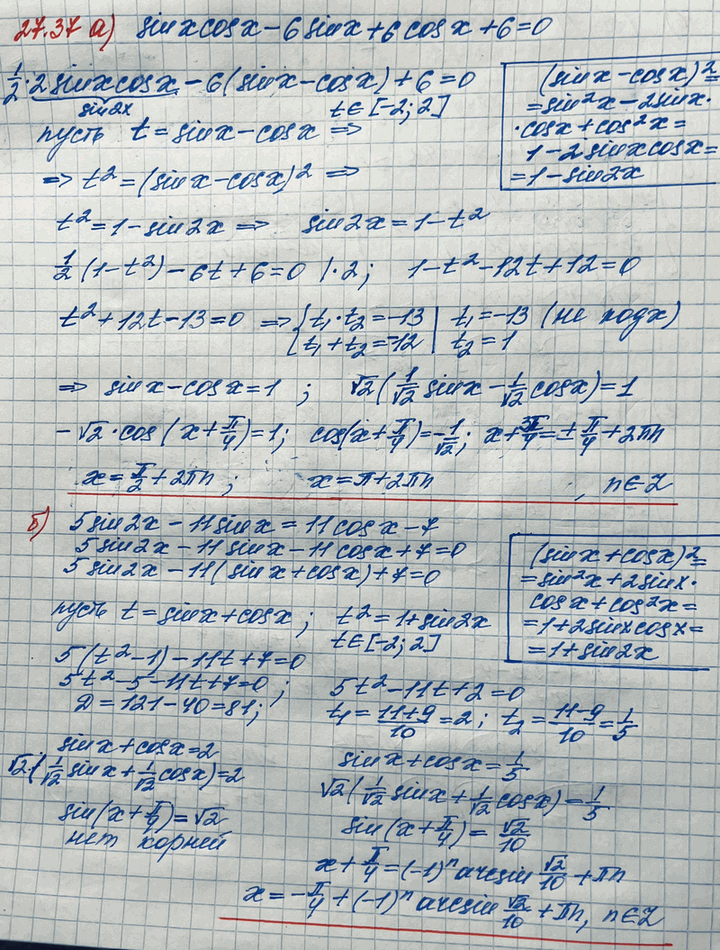 27.37 а) sinxcosx-6sinx+6cosx+6=0
1/2·2sinxcosx-6(sinx-cosx)+6=0
sin2x t∈[-2;2]
пусть t=sinx-cosx =>
(sinx-cosx)²=
=sin²x-2sinx·
·cosx+cos²x=
1-2sinxcosx=
=1-sin2x
=> t²=(sinx-cosx)² =>
t²=1-sin2x => sin2x=1-t²
1/2(1-t²)-6t+6=0 |·2; 1-t²-12t+12=0
t²+12t-13=0 => { t₁·t₂=-13 | t₁=-13 (не подх)
t₁+t₂=-12 | t₂=1
=> sinx-cosx=1 ; √2(1/√2 sinx-1/√2 cosx)=1
-√2·cos(x+π/4)=1; cos(x+π/4)=-1/√2; x+π/4=±3π/4+2πn
x=π/2+2πn; x=π+2πn , n∈Z
б) 5sin2x-11sinx=11cosx-7
5sin2x-11sinx-11cosx+7=0
5sin2x-11(sinx+cosx)+7=0
(sinx+cosx)²=
=sin²x+2sinx·
cosx+cos²x=
=1+2sinxcosx=
=1+sin2x
пусть t=sinx+cosx; t²=1+sin2x
t∈[-2;2]
5(t²-1)-11t+7=0
5t²-5-11t+7=0; 5t²-11t+2=0
D=121-40=81; t₁=11+9/10=2; t₂=11-9/10=1/5
sinx+cosx=2
√2·(1/√2 sinx+1/√2 cosx)=2
sin(x+π/4)=√2
нет корней
sinx+cosx=1/5
√2(1/√2 sinx+1/√2 cosx)=1/5
sin(x+π/4)=√2/10
x+π/4=(-1)ⁿarcsin √2/10+πn
x=-π/4+(-1)ⁿarcsin √2/10+πn, n∈Z